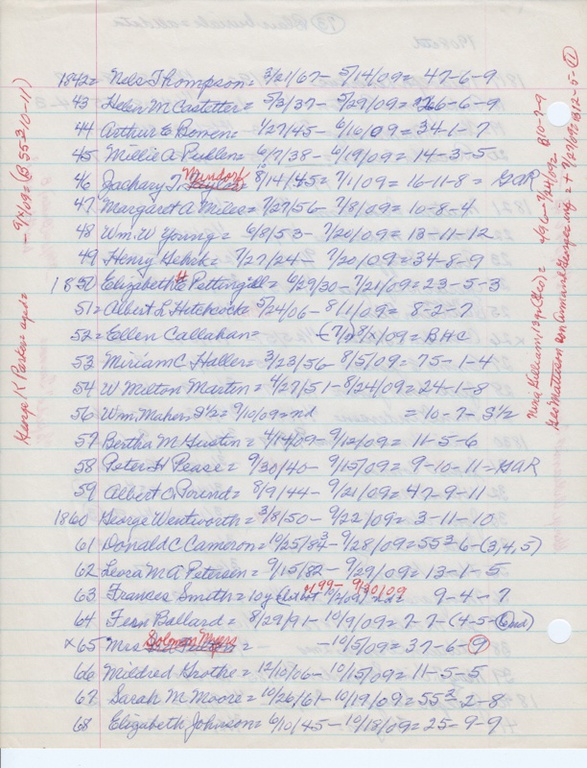 1842 = Nels Thompson = 3/21/67 - 5/14/09 = 47-6-9
43 Helen M Castetter = 5/3/37 - 5/29/09 = 66-6-9
44 Arthur E Bowen = 1/27/45 - 6/16/09 = 34-1-7
45 Millie A Pullen = 6/7/38 - 6/19/09 = 14-3-5
46 Zachary T Mundorf 8/14/45 = 7/1/09 = 16-11-8 = GAR
47 Margaret A Miles = 7/27/56 - 7/8/09 = 10-8-4
48 Wm. W Young = 6/8/53 - 7/20/09 = 13-11-12
49 Henry = 7/27/24 - 7/20/09 = 34-8-9
1850 Elizabeth Pettingill = 6/29/30 - 7/21/09 = 23-5-3
51 = Albert L Hitchcock = 5/24/06 - 8/1/09 = 8-2-7
52 = Ellen Callahan = /09 = BHC
53 Miriam C Haller = 3/23/56 - 8/5/09 = 75-1-4
54 W Milton Martin = 4/27/51 - 8/24/09 = 24-1-8
56 Wm. Mahers S½ = 9/10/09 = nd = 10-7- S½
57 Bertha M Hustin = 4/14/09 - 9/12/09 = 11-5-6
58 Peter H Pease = 9/30/40 - 9/15/09 = 9-10-11 = GAR
59 Albert C = 8/9/44 - 9/21/09 = 47-9-11
1860 George Wentworth = 3/8/50 - 9/22/09 = 3-11-10
61 Donald C Cameron = 10/25/83 - 9/28/09 = 55³ 6-(3,4,5)
62 Leora M A Petersen = 9/15/82 - 9/29/09 = 13-1-5
63 Frances Smith = 10y 99 - 9/30/09 9-4-7
64 Fern Ballard = 8/29/91 - 10/9/09 = 7-7-(4-5-6
x 65 Mrs Solomon Myers = - 10/5/09 = 37-6-9
66 Mildred Grothe = 12/10/06 - 10/15/09 = 11-5-5
67 Sarah M. Moore = 10/26/61 - 10/19/09 = 55² 2-8
68 Elizabeth Johnson = 6/10/45 - 10/18/09 = 25-9-9
George K Parker